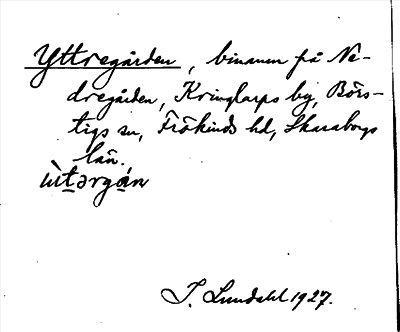 Yttregården, binamn på Ne-
dregården, Kringlarps by, Börs-
tigs sn, Frökinds hd, Skaraborgs
län.
ùtərgán
I. Lundahl 1927.